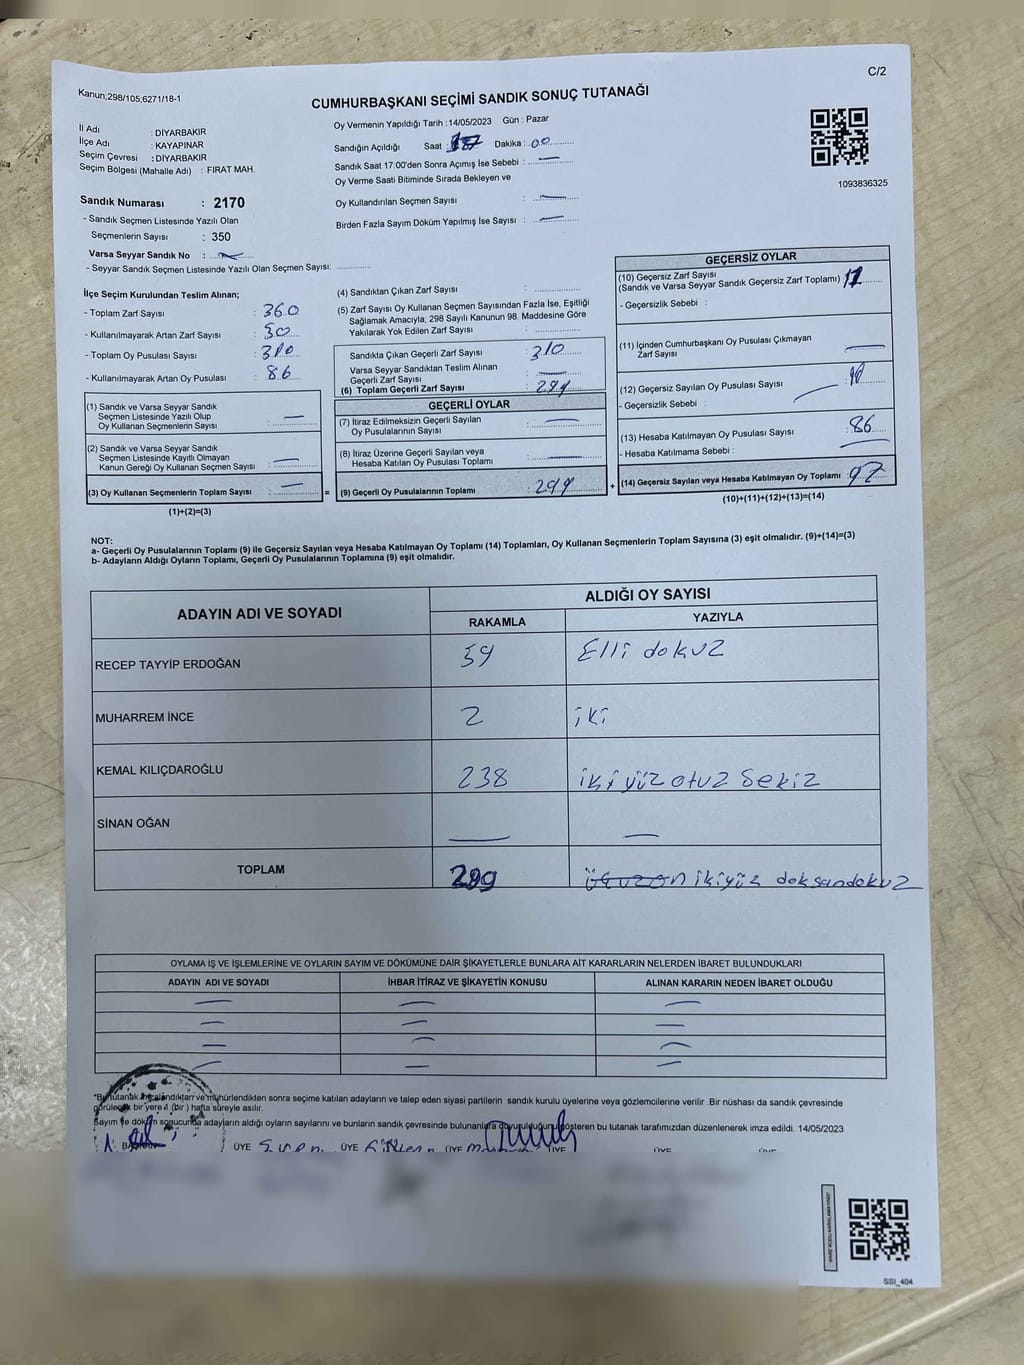 C/2
Kanun;298/105;6271/18-1
CUMHURBAŞKANI SEÇİMİ SANDIK SONUÇ TUTANAĞI
İl Adı : DİYARBAKIR
İlçe Adı : KAYAPINAR
Seçim Çevresi : DİYARBAKIR
Seçim Bölgesi (Mahalle Adı) : FIRAT MAH.
Oy Vermenin Yapıldığı Tarih :14/05/2023 Gün : Pazar
Sandığın Açıldığı Saat : Dakika : 00
Sandık Saat 17:00'den Sonra Açımış İse Sebebi : —
Oy Verme Saati Bitiminde Sırada Bekleyen ve
Oy Kullandırılan Seçmen Sayısı : —
Birden Fazla Sayım Döküm Yapılmış İse Sayısı : —
1093836325
Sandık Numarası : 2170
- Sandık Seçmen Listesinde Yazılı Olan
Seçmenlerin Sayısı : 350
Varsa Seyyar Sandık No :
- Seyyar Sandık Seçmen Listesinde Yazılı Olan Seçmen Sayısı:
İlçe Seçim Kurulundan Teslim Alınan;
- Toplam Zarf Sayısı : 360
- Kullanılmayarak Artan Zarf Sayısı : 50
- Toplam Oy Pusulası Sayısı :
- Kullanılmayarak Artan Oy Pusulası : 86
(1) Sandık ve Varsa Seyyar Sandık
Seçmen Listesinde Yazılı Olup
Oy Kullanan Seçmenlerin Sayısı : —
(2) Sandık ve Varsa Seyyar Sandık
Seçmen Listesinde Kayıtlı Olmayan
Kanun Gereği Oy Kullanan Seçmen Sayısı : —
(3) Oy Kullanan Seçmenlerin Toplam Sayısı : — =
(1)+(2)=(3)
(4) Sandıktan Çıkan Zarf Sayısı :
(5) Zarf Sayısı Oy Kullanan Seçmen Sayısından Fazla İse, Eşitliği
Sağlamak Amacıyla; 298 Sayılı Kanunun 98. Maddesine Göre
Yakılarak Yok Edilen Zarf Sayısı :
Sandıkta Çıkan Geçerli Zarf Sayısı : 310
Varsa Seyyar Sandıktan Teslim Alınan
Geçerli Zarf Sayısı : —
(6) Toplam Geçerli Zarf Sayısı : 299
GEÇERLİ OYLAR
(7) İtiraz Edilmeksizin Geçerli Sayılan
Oy Pusulalarının Sayısı : —
(8) İtiraz Üzerine Geçerli Sayılan veya
Hesaba Katılan Oy Pusulası Toplamı : —
(9) Geçerli Oy Pusulalarının Toplamı : 299 +
GEÇERSİZ OYLAR
(10) Geçersiz Zarf Sayısı
(Sandık ve Varsa Seyyar Sandık Geçersiz Zarf Toplamı) :
- Geçersizlik Sebebi :
(11) İçinden Cumhurbaşkanı Oy Pusulası Çıkmayan
Zarf Sayısı : —
(12) Geçersiz Sayılan Oy Pusulası Sayısı :
- Geçersizlik Sebebi :
(13) Hesaba Katılmayan Oy Pusulası Sayısı : 86
- Hesaba Katılmama Sebebi :
(14) Geçersiz Sayılan veya Hesaba Katılmayan Oy Toplamı : 97
(10)+(11)+(12)+(13)=(14)
NOT:
a- Geçerli Oy Pusulalarının Toplamı (9) ile Geçersiz Sayılan veya Hesaba Katılmayan Oy Toplamı (14) Toplamları, Oy Kullanan Seçmenlerin Toplam Sayısına (3) eşit olmalıdır. (9)+(14)=(3)
b- Adayların Aldığı Oyların Toplamı, Geçerli Oy Pusulalarının Toplamına (9) eşit olmalıdır.
ADAYIN ADI VE SOYADI
ALDIĞI OY SAYISI
RAKAMLA YAZIYLA
RECEP TAYYİP ERDOĞAN 59 Elli dokuz
MUHARREM İNCE 2 iki
KEMAL KILIÇDAROĞLU 238 ikiyüz otuz sekiz
SİNAN OĞAN — —
TOPLAM 299 ikiyüz doksandokuz
OYLAMA İŞ VE İŞLEMLERİNE VE OYLARIN SAYIM VE DÖKÜMÜNE DAİR ŞİKAYETLERLE BUNLARA AİT KARARLARIN NELERDEN İBARET BULUNDUKLARI
ADAYIN ADI VE SOYADI İHBAR İTİRAZ VE ŞİKAYETİN KONUSU ALINAN KARARIN NEDEN İBARET OLDUĞU
"Bu tutanak imzalandıktan ve mühürlendikten sonra seçime katılan adayların ve talep eden siyasi partilerin sandık kurulu üyelerine veya gözlemcilerine verilir .Bir nüshası da sandık çevresinde
görülecek bir yere 1 (bir ) hafta süreyle asılır.
Sayım ve döküm sonucunda adayların aldığı oyların sayılarını ve bunların sandık çevresinde bulunanlara duyurulduğunu gösteren bu tutanak tarafımızdan düzenlenerek imza edildi. 14/05/2023
BAŞKAN ÜYE ÜYE ÜYE ÜYE ÜYE ÜYE
SSI_404